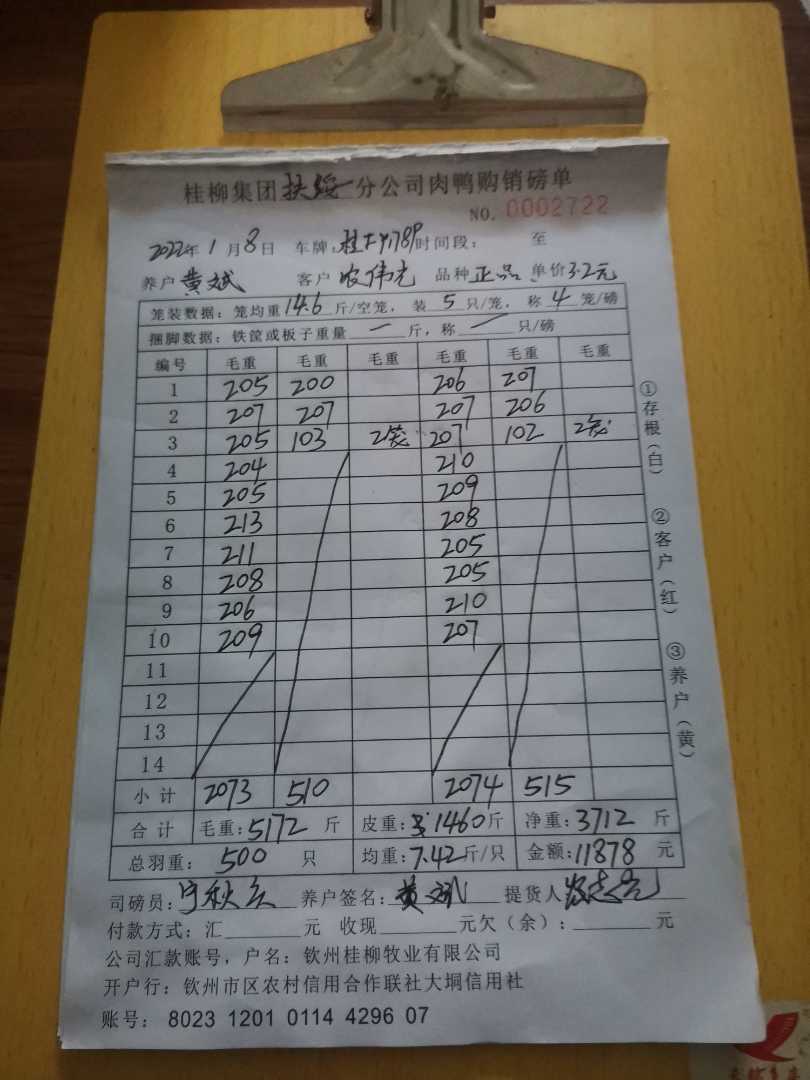 桂柳集团扶绥分公司肉鸭购销磅单
NO. 0002722
2022年1月8日 车牌: 时间段: 至
养户黄斌 客户农伟光 品种正品 单价3.2元
笼装数据: 笼均重14.6斤/空笼, 装5只/笼, 称4笼/磅
捆脚数据: 铁筐或板子重量一斤, 称一只/磅
编号 毛重 毛重 毛重 毛重 毛重 毛重
1 205 200 206 207
2 207 207 207 206
3 205 103 2笼 207 102 2笼
4 204 210
5 205 209
6 213 208
7 211 205
8 208 205
9 206 210
10 209 207
11
12
13
14
小计 2073 510 2074 515
合计 毛重:5172斤 皮重:1460斤 净重:3712斤
总羽重: 500 只 均重:7.42斤/只 金额:11878元
司磅员: 养户签名:黄斌 提货人
付款方式: 汇 元 收现 元欠(余): 元
公司汇款账号, 户名: 钦州桂柳牧业有限公司
开户行: 钦州市区农村信用合作联社大垌信用社
账号: 8023 1201 0114 4296 07
①存根(白)
②客户(红)
③养户(黄)